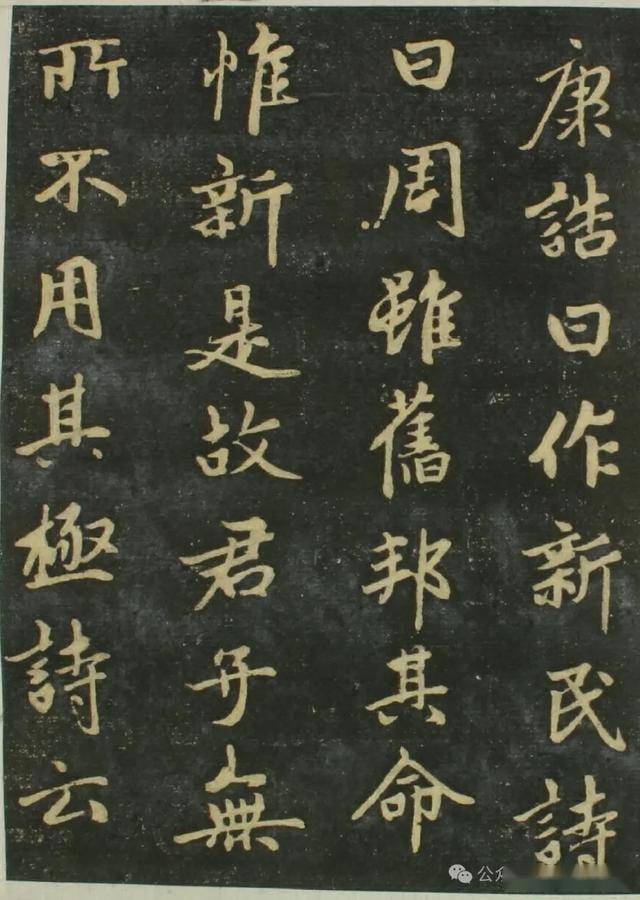 康誥曰作新民詩
曰周雖舊邦其命
惟新是故君子無
所不用其極詩云
公众